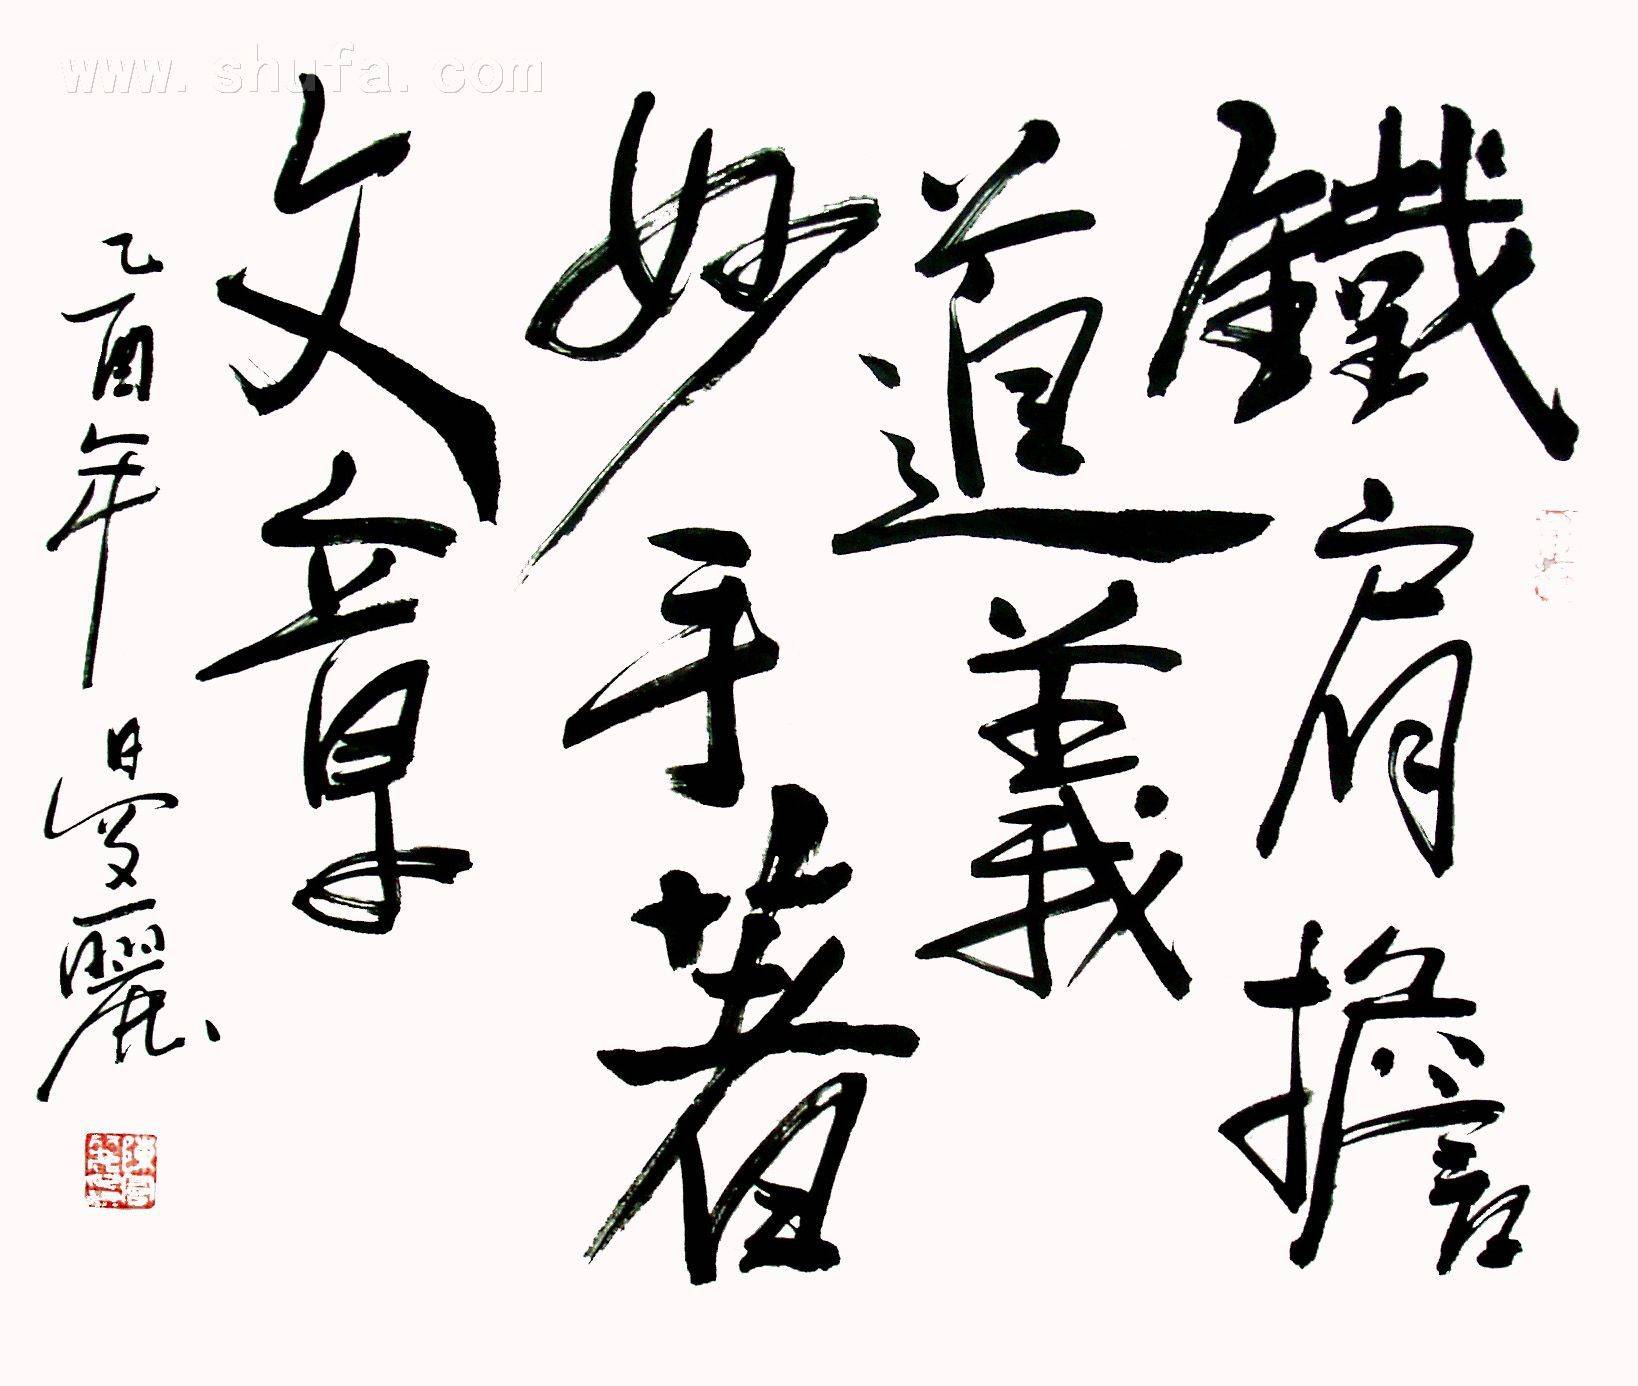 鐵肩擔
道義
妙手著
文章
乙酉年
曼麗
www.shufa.com